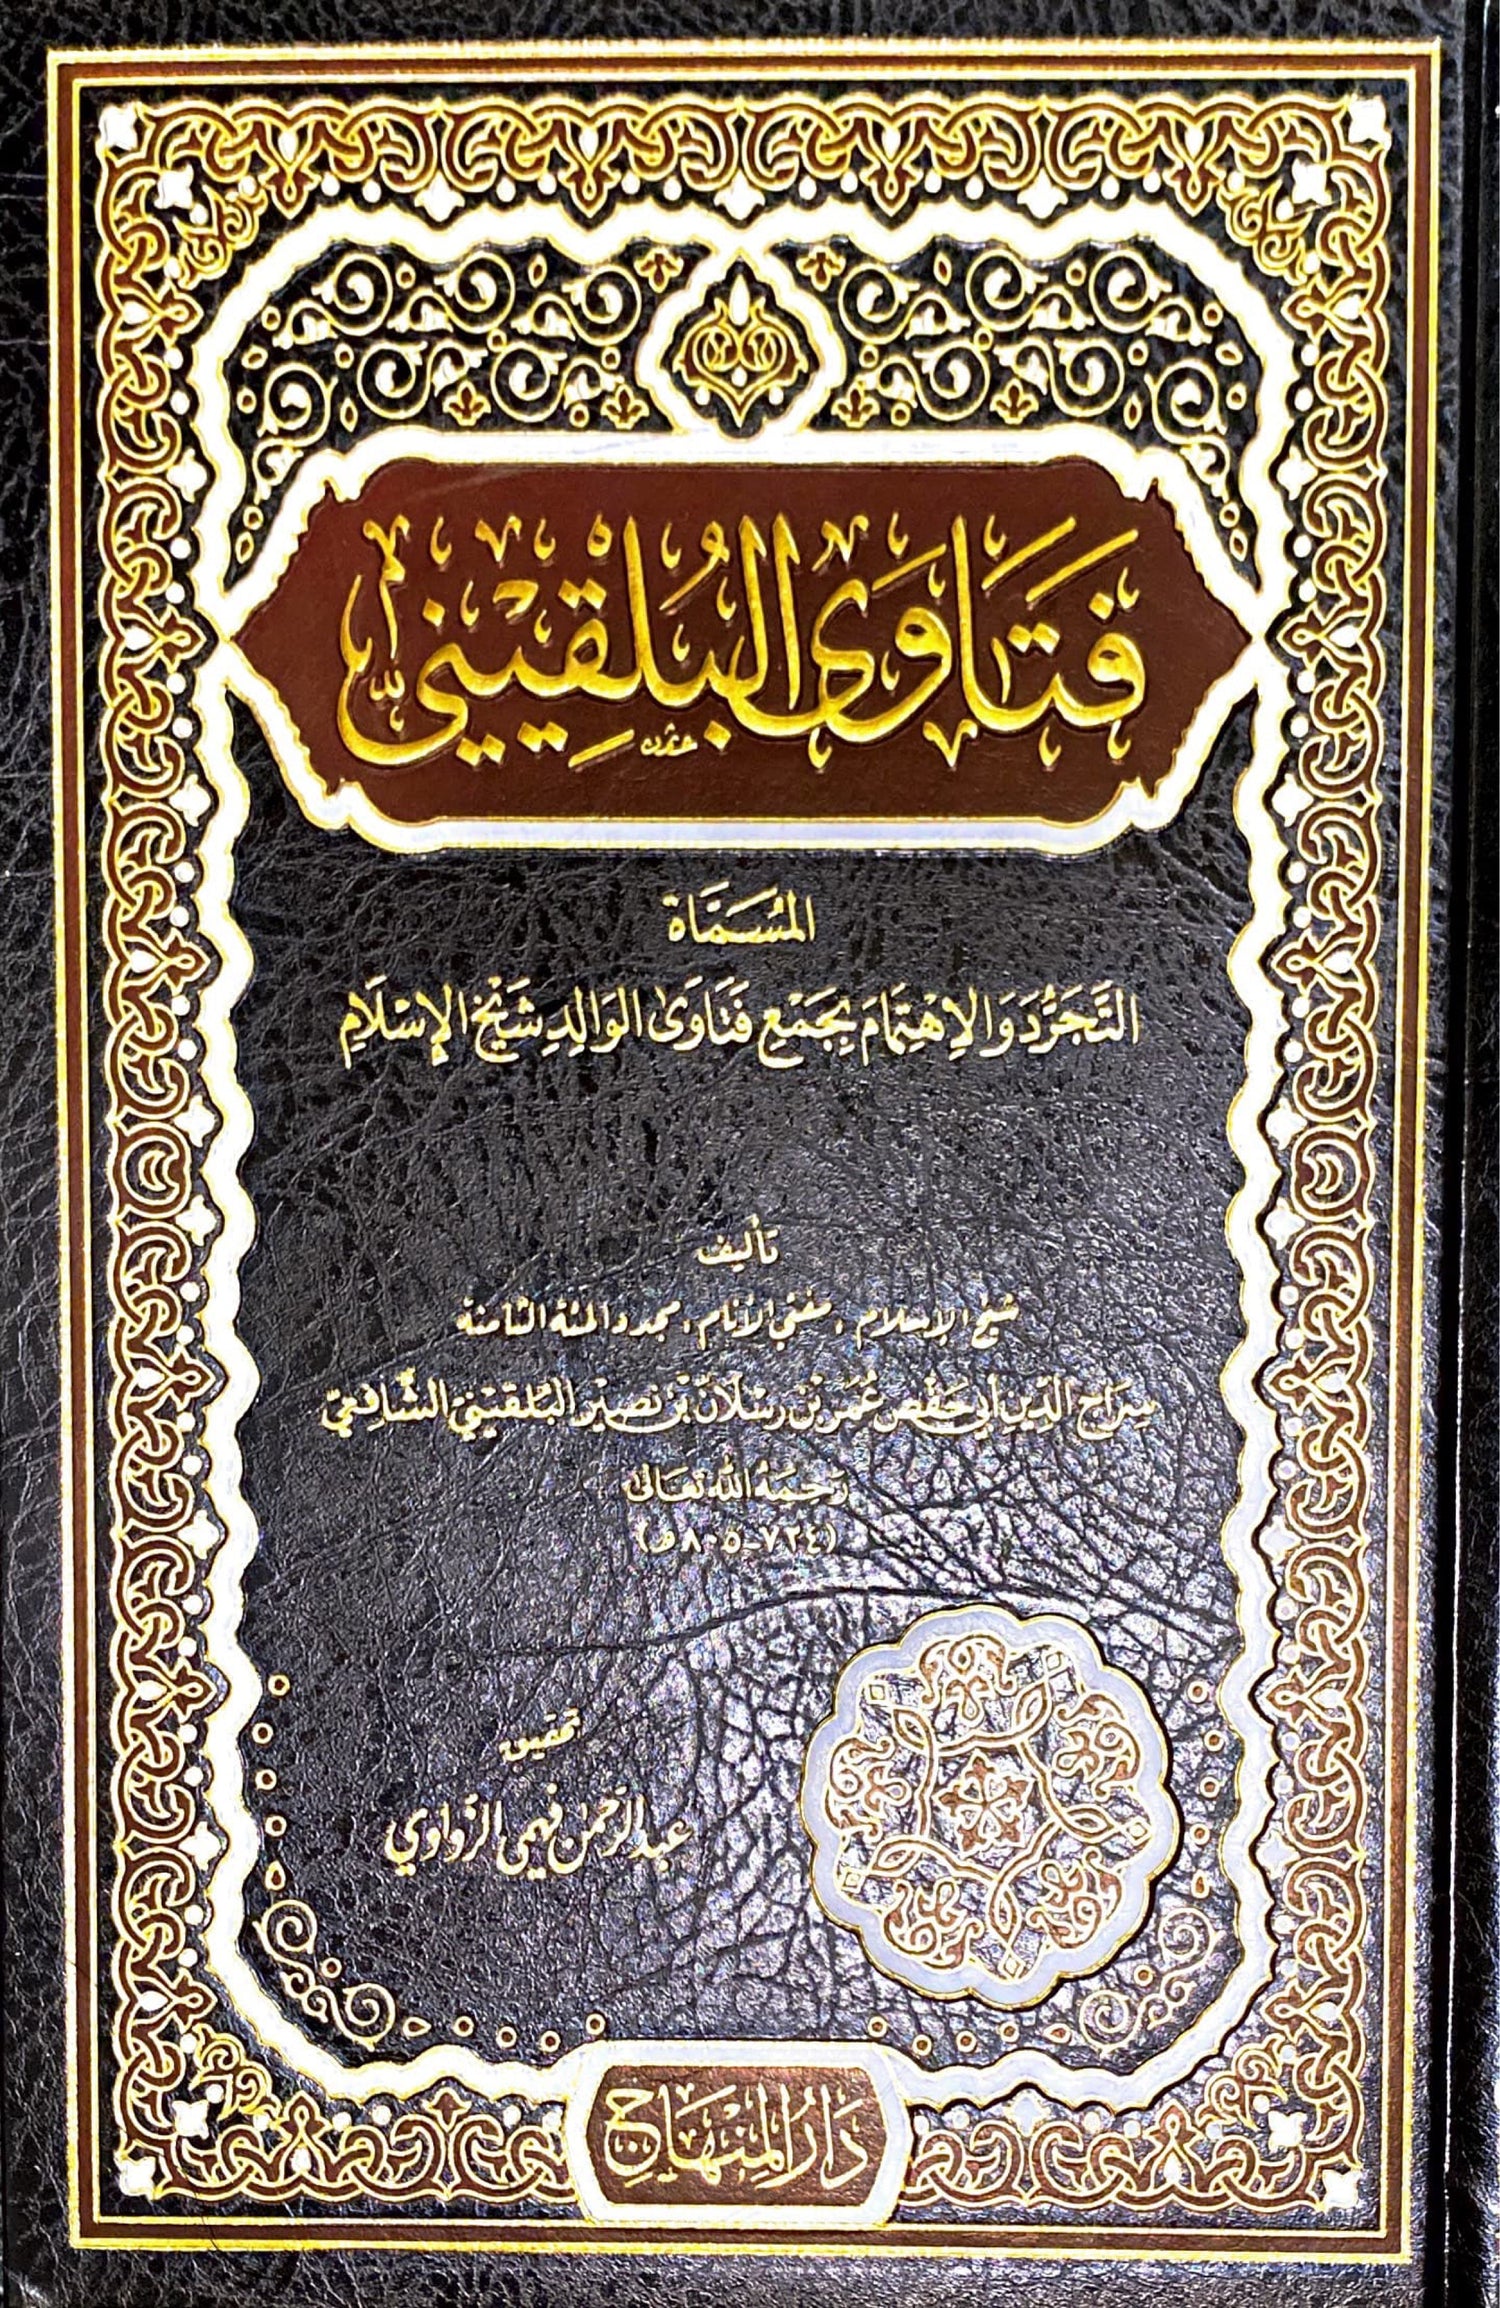 فَتَاوَى البُلقِيْنِيِّ
المُسَمَّاة
التَّجَرُّدَ وَالِاهْتِمَامَ بِجَمْعِ فَتَاوَى الوَالِدِ شَيْخِ الإِسْلَامِ
تأليف
شيخ الإسلام ، مفتي الأنام ، مجدد المئة الثامنة
سِرَاج الدِّين أبي حَفْص عُمَر بْن رسْلَان بْن نصِير البُلقيْنيّ الشَّافِعيّ
رَحِمَهُ الله تعَالى
(٧٢٤-٨٠٥هـ)
تحقيق
عبد الرّحمٰن فهمي الزّواوي
دَارُ المِنْهَاجِ